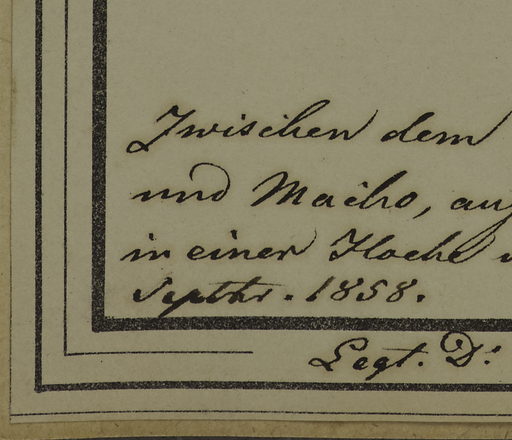 Zwischen dem
und Macho, auf
in einer Hoehe
Septbr. 1858.
Legt. Dr.